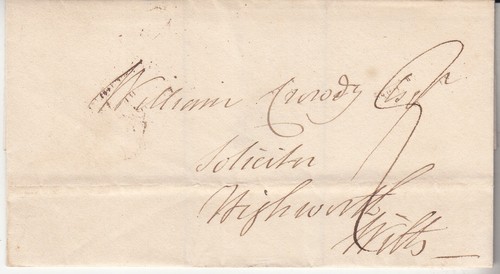 William Crowdy Esqr
Solicitor
Highworth
Wilts